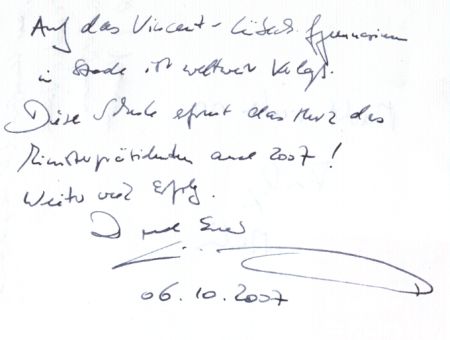 Auf das Vincent-Lübeck Gymnasium
in Stade ist weltweit Verlaß.
Diese Schule erfreut das Herz des
Ministerpräsidenten auch 2007!
Weiter viel Erfolg.
06.10.2007